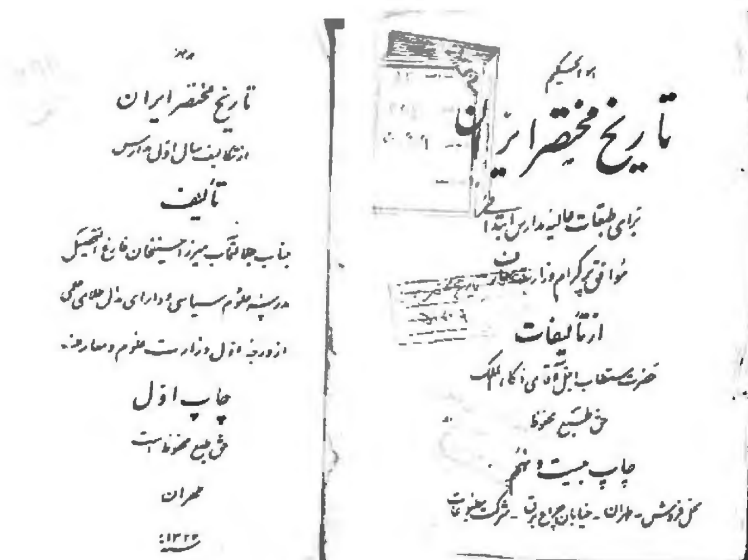 هو الحکیم
تاریخ مختصر ایران
برای طبقات عالیه مدارس ابتدائی
موافق پرگرام وزارت
از تألیفات
حضرت مستطاب اجل آقای ذکاءالملک
حق طبع محفوظ
چاپ بیست و نهم
محل فروش - طهران - خیابان چراغ برق - شرکت مطبوعات
تاریخ مختصر ایران
از تکالیف سال اول مدارس
تألیف
جناب جلالتمآب میرزا حسینخان فارغ التحصیل
مدرسه علوم سیاسی و دارای مدال طلای علمی
از درجه اول وزارت علوم و معارف
چاپ اول
حق طبع محفوظ است
طهران